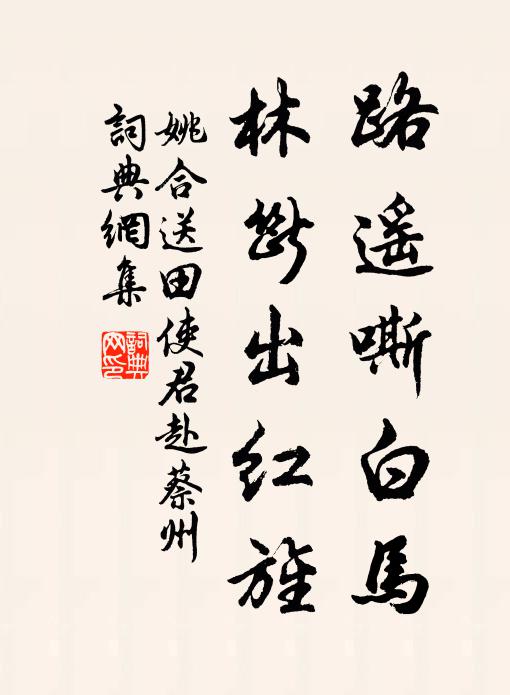 路遥嘶白馬
林斷出紅旌
姚合送田使君赴蔡州
詞典網集
詞典網印